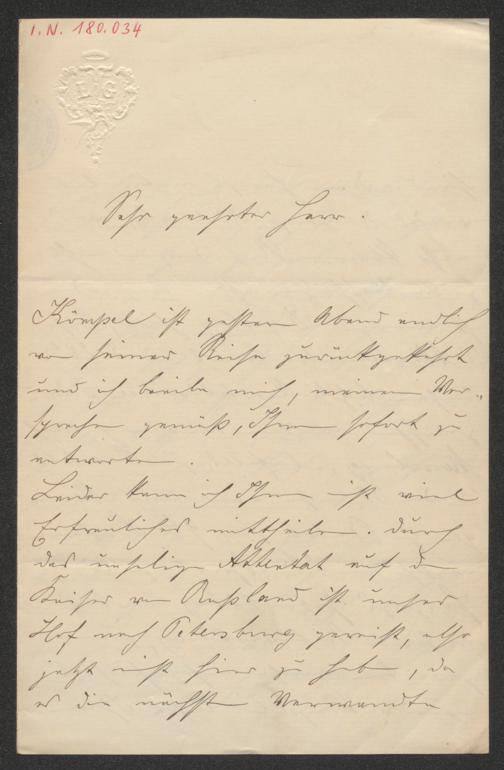 I. N. 180.034
LG
Sehr geehrter Herr.
Kömpel ist gestern Abend endlich
von seiner Reise zurückgekehrt
und ich beeile mich, meinem Ver-
sprechen gemäß, Ihnen sofort zu
antworten.
Leider kann ich Ihnen nicht viel
Erfreuliches mittheilen. Durch
das unselige Attentat auf den
Kaiser von Rußland ist unser
Hof nach Petersburg gereist, also
jetzt nicht hier zu haben, da
es die nächsten Verwandten